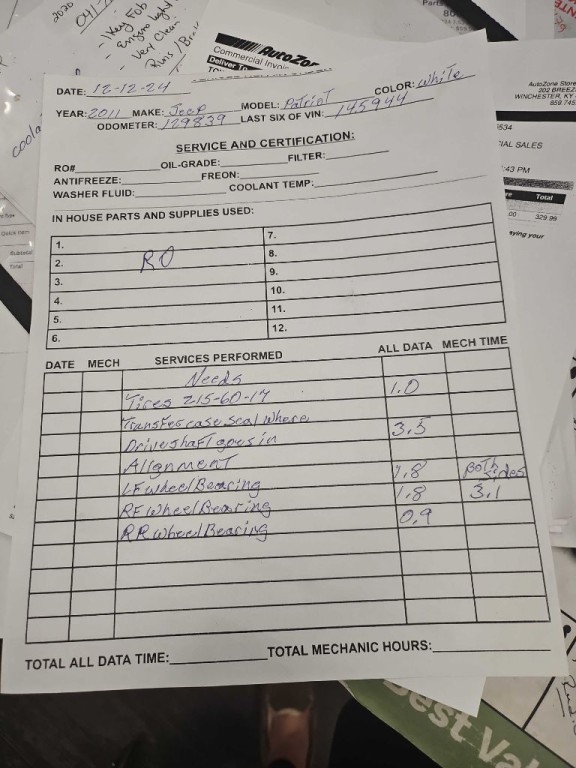 2020
041
- Key Fob
- Engine light
- Very Clean
Runs / B
AutoZo
Commercial Invoic
Deliver To
Part
AutoZone Store
202 BREEZ
WINCHESTER, KY
859 745
DATE: 12-12-24
YEAR: 2011 MAKE: Jeep MODEL: Patriot COLOR: White
ODOMETER: 129839 LAST SIX OF VIN: 145944
SERVICE AND CERTIFICATION:
RO# OIL-GRADE: FILTER:
ANTIFREEZE: FREON:
WASHER FLUID: COOLANT TEMP:
IN HOUSE PARTS AND SUPPLIES USED:
1. 7.
2. RO 8.
3. 9.
4. 10.
5. 11.
6. 12.
DATE MECH SERVICES PERFORMED ALL DATA MECH TIME
Needs
Tires 215-60-17 1.0
Transfer case seal where
Driveshaft goes in 3.5
Alignment
LF wheel Bearing 1.8 Both sides
RF wheel Bearing 1.8 3.1
RR wheel Bearing 0.9
TOTAL ALL DATA TIME: TOTAL MECHANIC HOURS:
5534
IAL SALES
:43 PM
Total
329.99
aying your
coola
Subtotal
Total
est Val